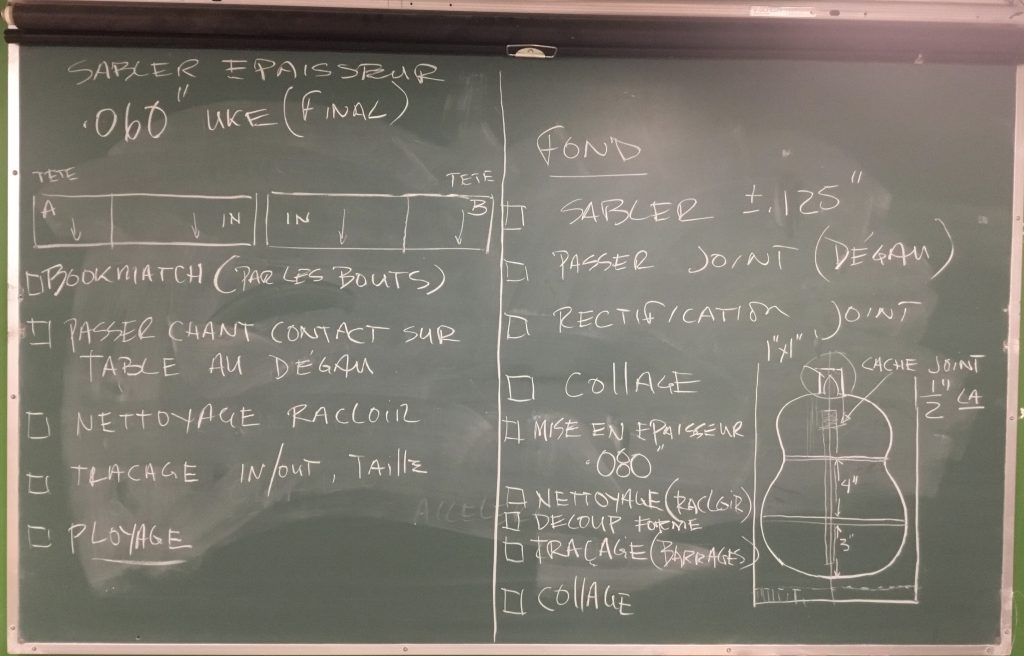 SABLER EPAISSEUR
.060" UKE (FINAL)
TETE TETE
A IN IN B
BOOKMATCH (PAR LES BOUTS)
PASSER CHANT CONTACT SUR
TABLE AU DÉGAU
NETTOYAGE RACLOIR
TRACAGE IN/OUT, TAILLE
PLOYAGE
FOND
SABLER ±.125"
PASSER JOINT (DÉGAU)
RECTIFICATION JOINT
COllAGE
MISE EN EPAISSEUR
.080"
NETTOYAGE (RACLOIR)
DECOUP FORME
TRAÇAGE (BARRAGES)
COllAGE
1"x1"
CACHE JOINT
1/2" LA
4"
3"